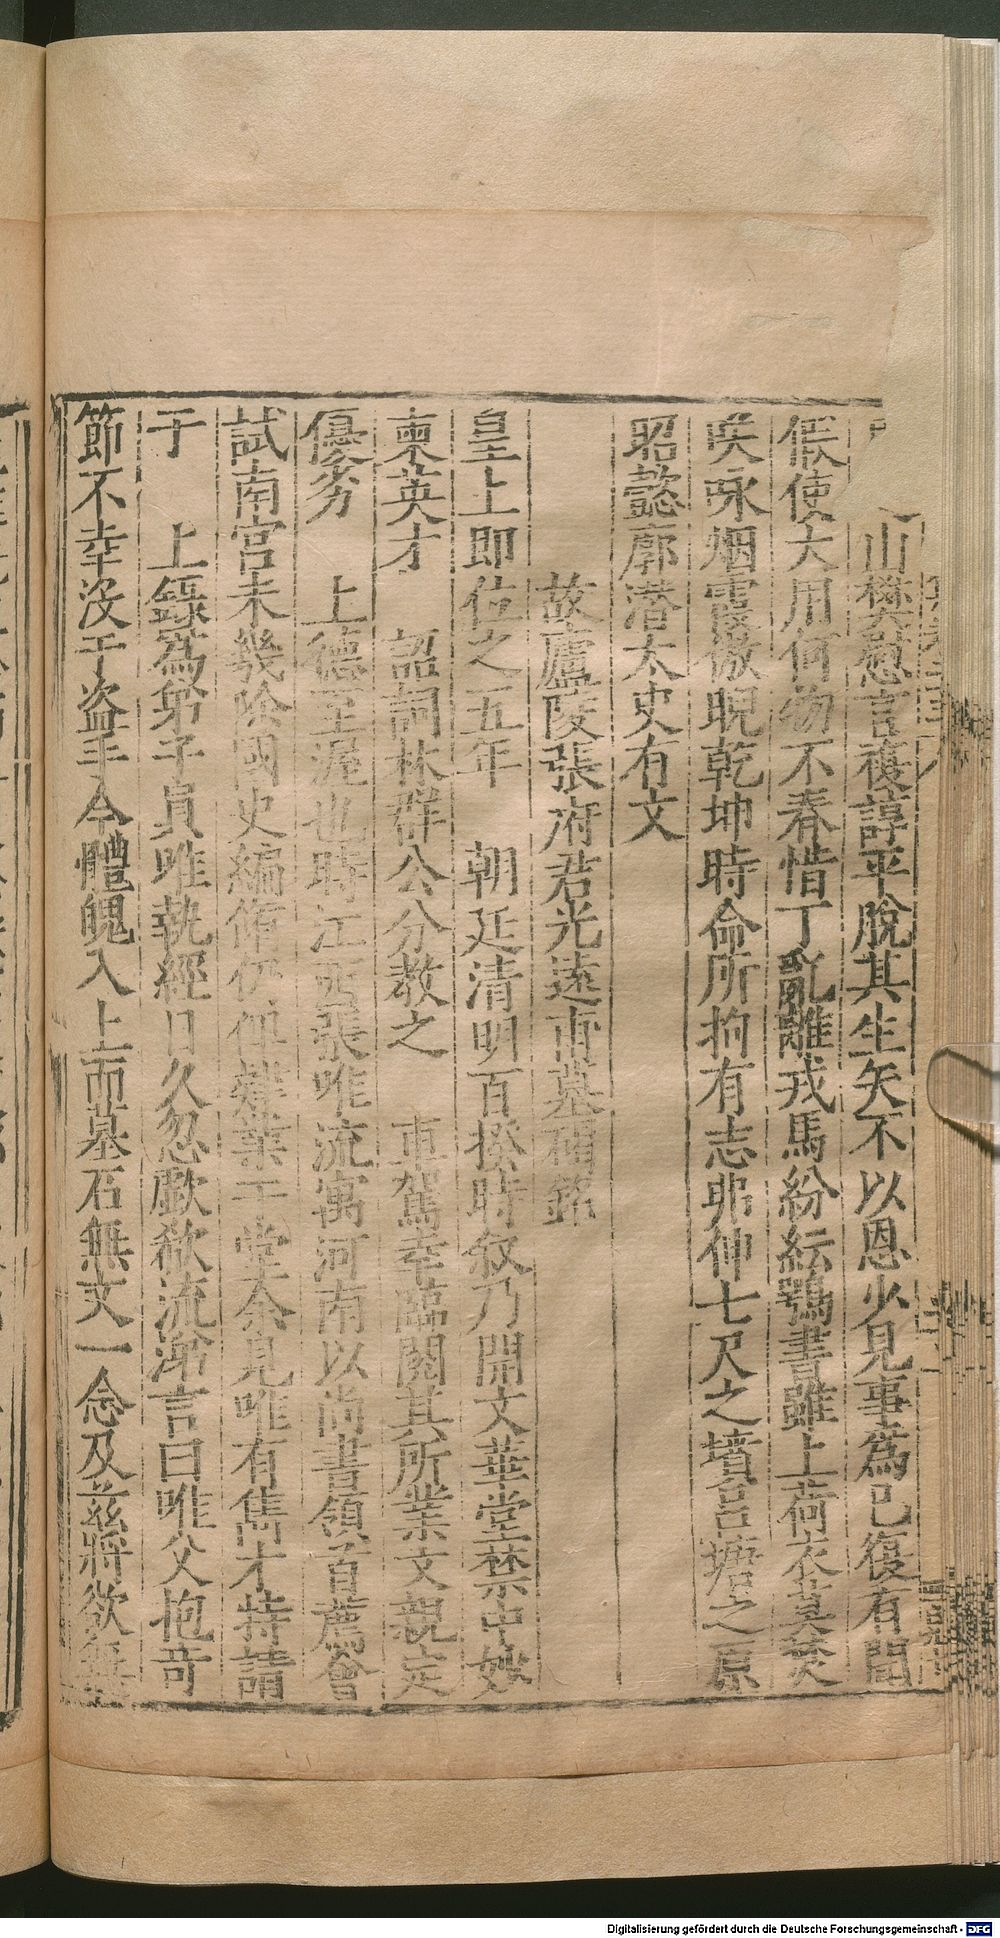 山樊慰言複諄平脫其生矢不以恩少見事為已復有間
假使大用何物不春惜丁亂離戎馬紛紜鶚書雖上荷衣莫焚
咲咏烟霞傲睨乾坤時命所拘有志弗伸七尺之墳呂塘之原
昭懿廓潜太史有文
故廬陵張府君光遠甫墓碣銘
皇上即位之五年　朝廷清明百揆時叙乃開文華堂禁中妙
柬英才　詔詞林群公分教之　車駕幸臨閱其所業文親定
優劣　上德至渥也時江西張唯流寓河南以尚書領首薦會
試南宮未幾除國史編脩仍俾肄業于堂余見唯有雋才特請
于　上録為弟子員唯執經日久忽歔欷流涕言曰唯父抱奇
節不幸没于盗手今體魄入土而墓石無文一念及兹將欲無
Digitalisierung gefördert durch die Deutsche Forschungsgemeinschaft - DFG